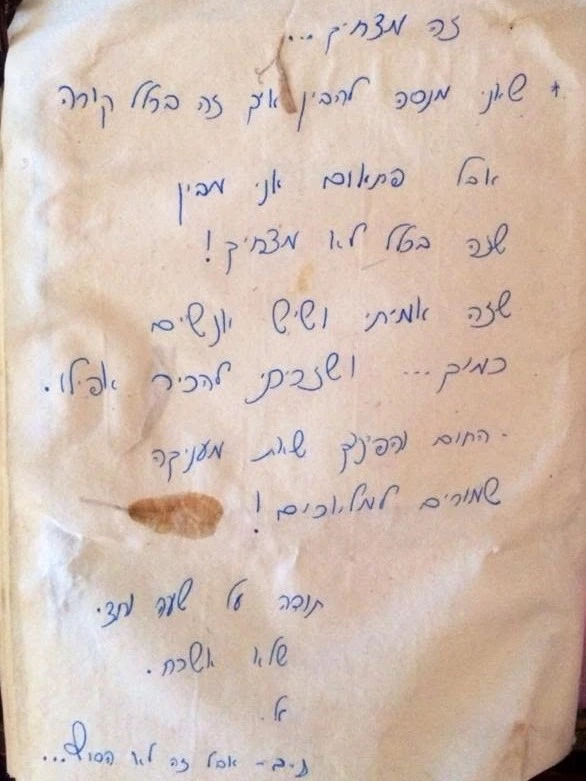 זה מצחיק...
* שאני מנסה להבין איך זה בכלל קורה
אבל פתאום אני מבין
שזה בכלל לא מצחיק!
שזה אמיתי ושיש אנשים
כמוך... ושזכיתי להכיר אפילו.
- החום והפינוק שאת מעניקה
שמורים למלאכים!
תודה על שעה וחצי.
שלא אשכח.
א.
נ.ב- אבל זה לא הסוף...